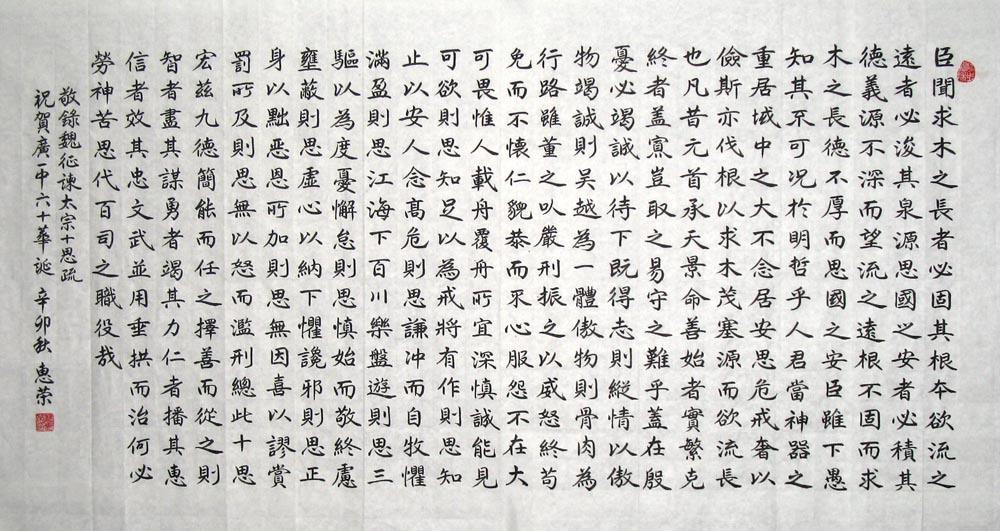 臣聞求木之長者必固其根本欲流之
遠者必浚其泉源思國之安者必積其
德義源不深而望流之遠根不固而求
木之長德不厚而思國之安臣雖下愚
知其不可况於明哲乎人君當神器之
重居城中之大不念居安思危戒奢以
儉斯亦伐根以求木茂塞源而欲流長
也凡昔元首承天景命善始者實繁克
終者蓋寡豈取之易守之難乎蓋在殷
憂必竭誠以待下既得志則縱情以傲
物竭誠則吴越為一體傲物則骨肉為
行路雖董之以嚴刑振之以威怒終苟
免而不懷仁貌恭而不心服怨不在大
可畏惟人載舟覆舟所宜深慎誠能見
可欲則思知足以為戒將有作則思知
止以安人念高危則思謙冲而自牧懼
滿盈則思江海下百川樂盤遊則思三
驅以為度憂懈怠則思慎始而敬終慮
壅蔽則思虛心以納下懼讒邪則思正
身以黜惡恩所加則思無因喜以謬賞
罰所及則思無以怒而濫刑總此十思
宏兹九德簡能而任之擇善而從之則
智者盡其謀勇者竭其力仁者播其惠
信者效其忠文武並用垂拱而治何必
勞神苦思代百司之職役哉
敬錄魏征諫太宗十思疏
祝賀廣二中六十華誕 辛卯秋 惠荣